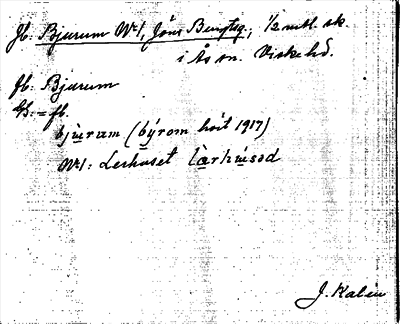 Jb. Bjurum Nr 1, Jöns Bengtsg., 1/2 mtl. sk.
i Ås sn. Viske hd.
Jb: Bjurum
Uj: = jb.
bjùram (by̆rom hört 1917)
Nr 1: Lerhuset làrhùsəd
J. Kalén